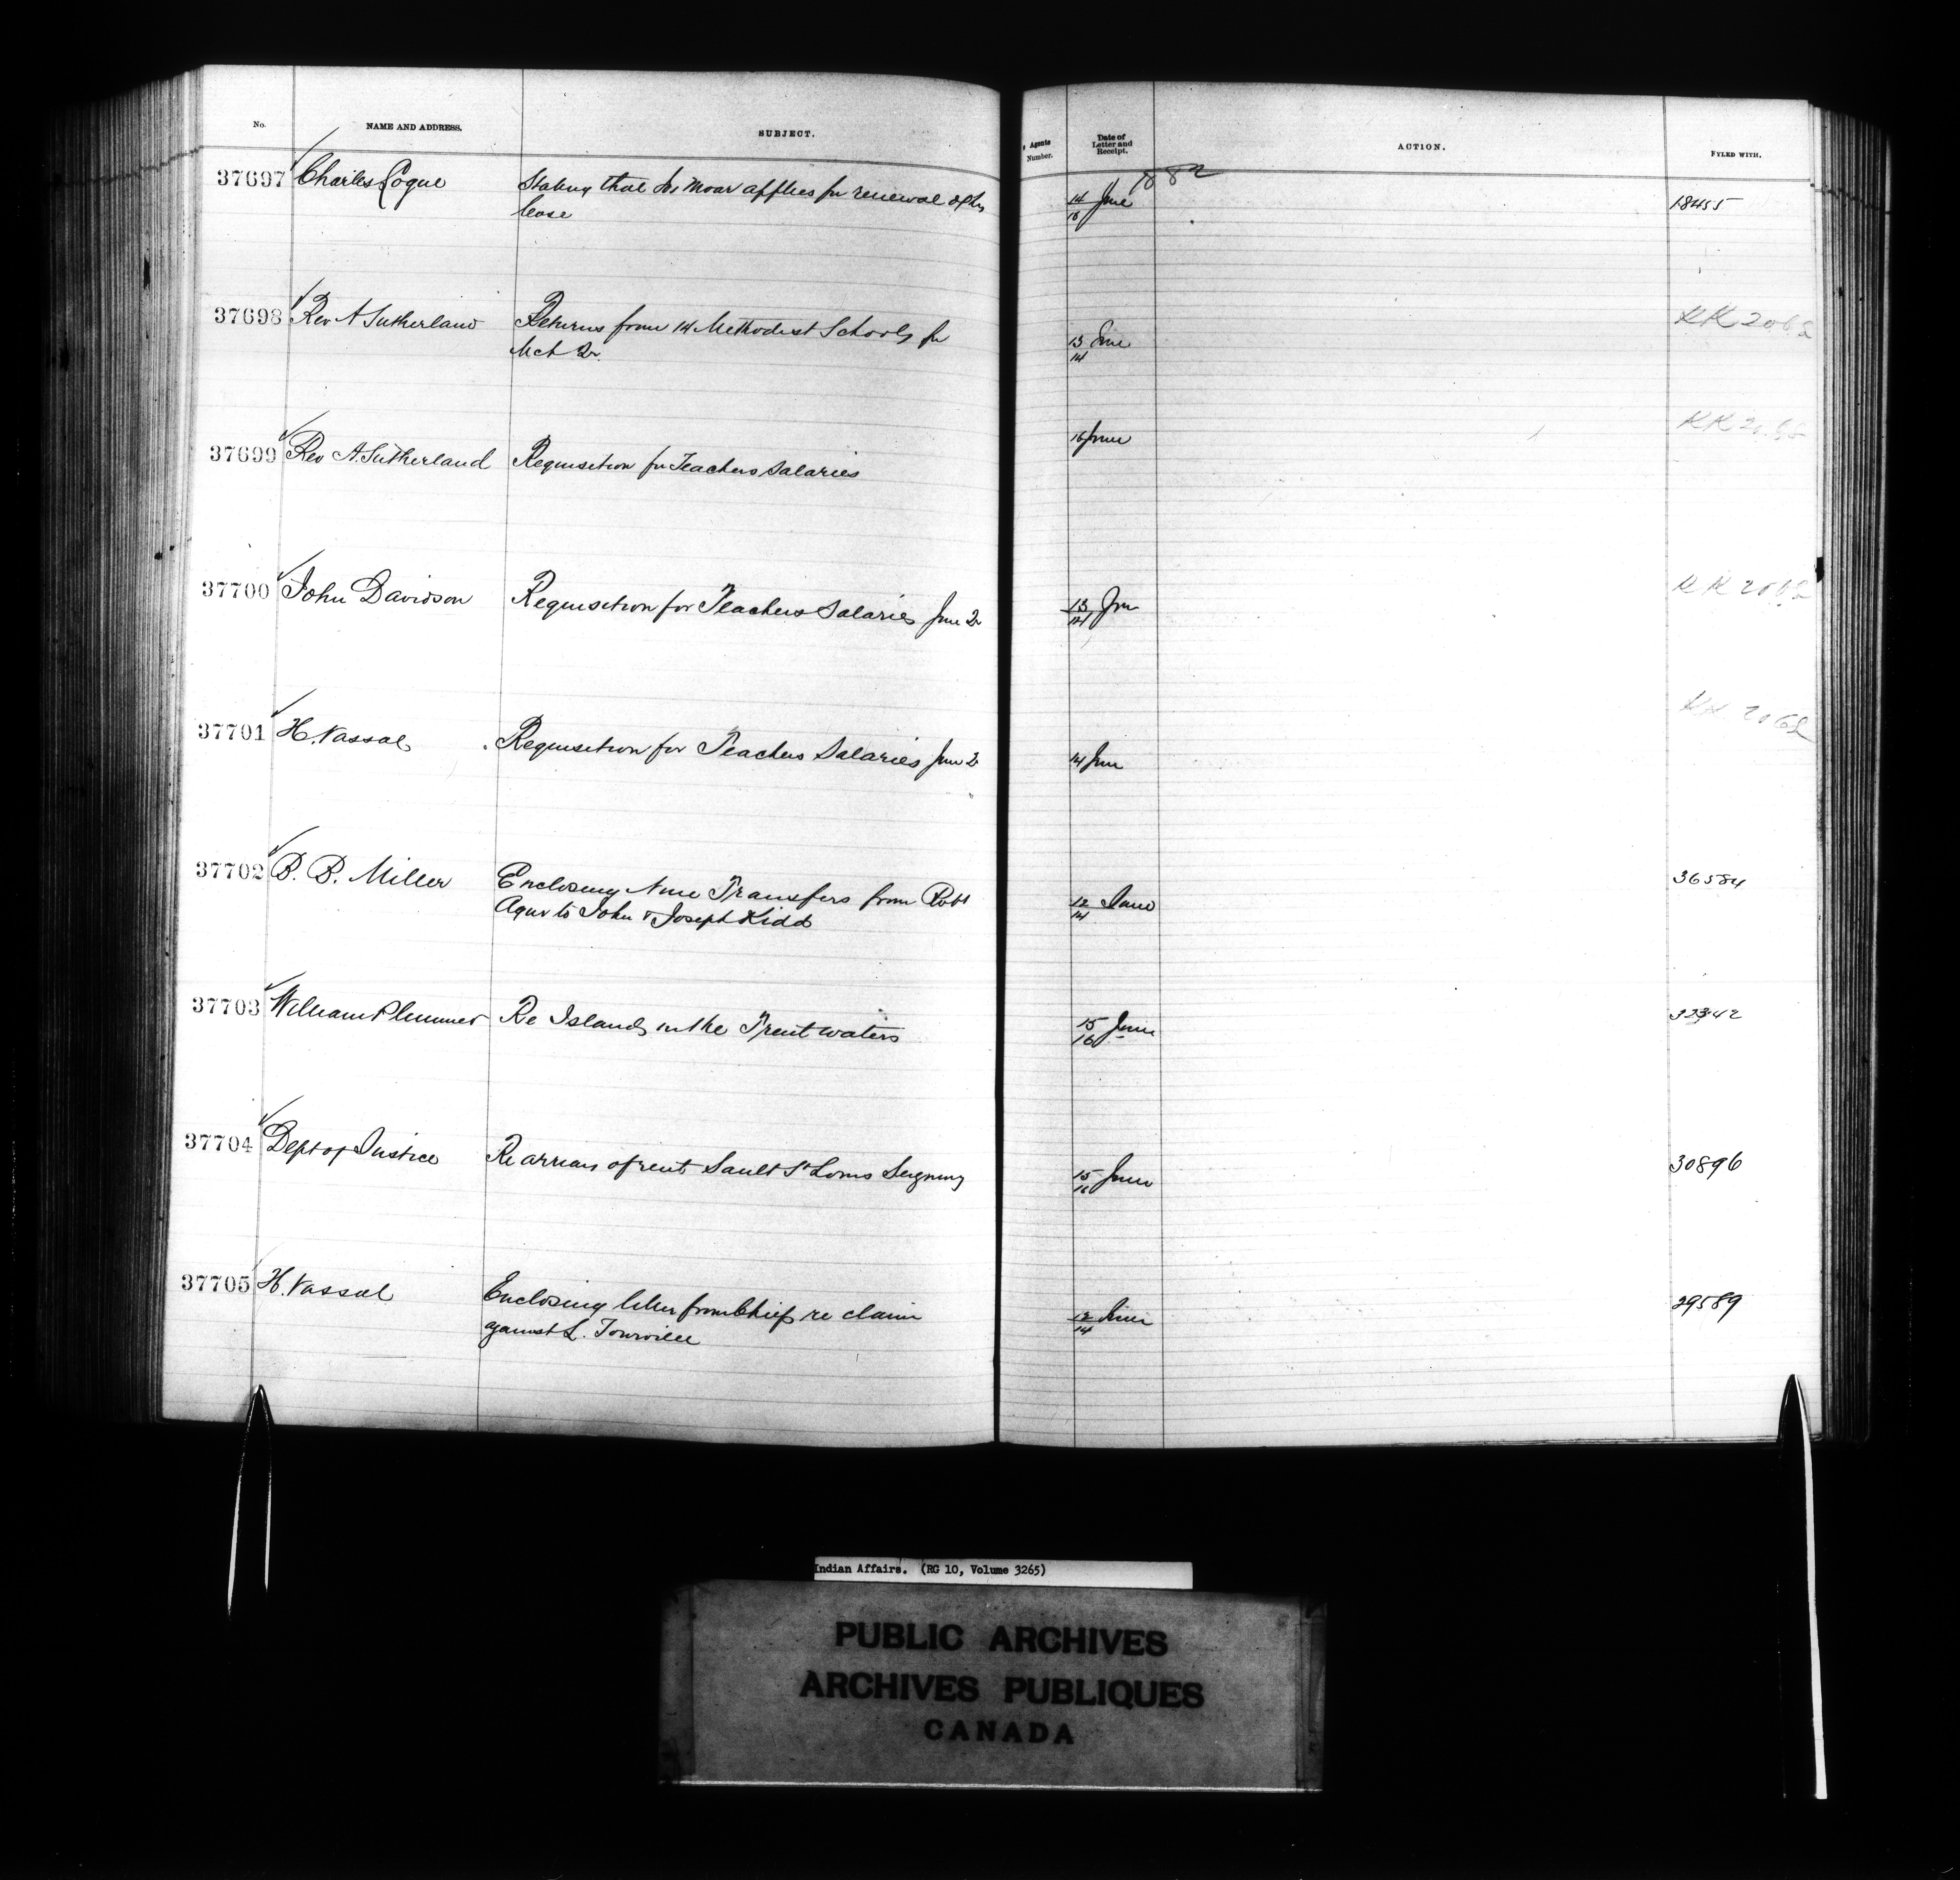 No. NAME AND ADDRESS. SUBJECT. Agents Number. Date of Letter and Receipt. ACTION. FYLED WITH.
1882
37697 Charles Logue Stating that Jos Moar applies for renewal of his
lease
14/16 June 18455
37698 Rev A Sutherland Returns from 14 Methodist Schools for
Mch Qr.
13/14 June KK 2062
37699 Rev A. Sutherland Requisition for Teachers Salaries
16 June KK
37700 John Davidson Requisition for Teachers Salaries June Qr
13/14 Jun KK 2062
37701 H. Vassal Requisition for Teachers Salaries June Qr
14 June KK 2062
37702 B. B. Miller Enclosing nine Transfers from Robt
Agur to John & Joseph Kidd
12/14 June 36584
37703 William Plummer Re Islands in the Trent waters
15/16 June 32342
37704 Dept of Justice Re arrears of rent Sault St Louis Seigniory
15/16 June 30896
37705 H. Vassal Enclosing letter from Chief re claim
against L. Tourville
12/14 June 29589
Indian Affairs. (RG 10, Volume 3265)
PUBLIC ARCHIVES
ARCHIVES PUBLIQUES
CANADA